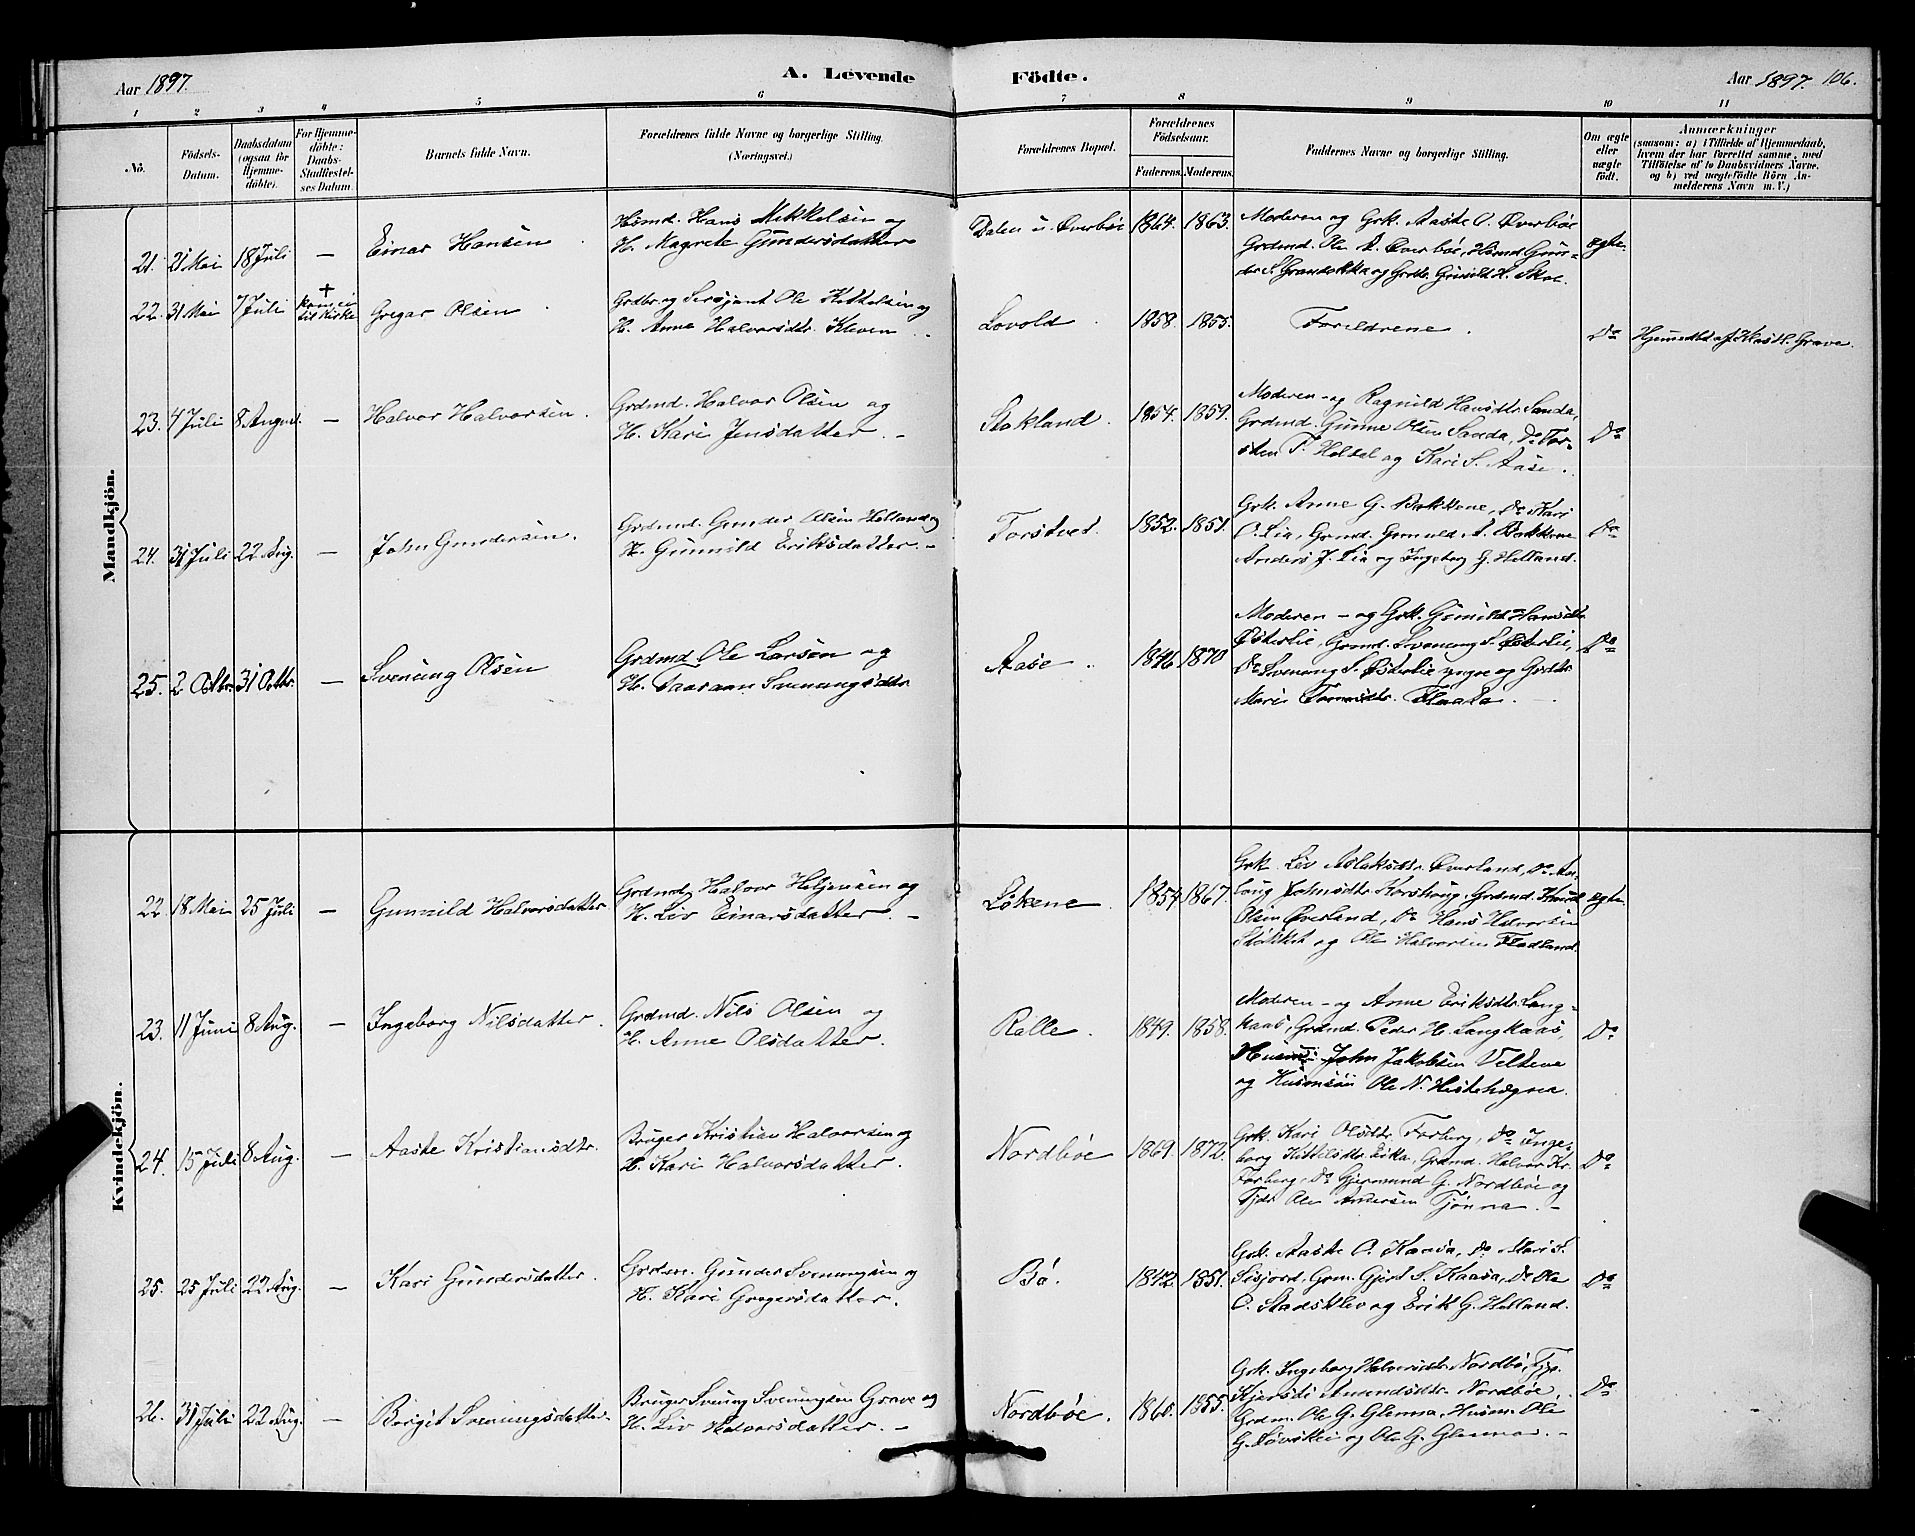 Aar 1897.
A. Levende Födte.
Aar 1897. 106.
1 2 3 4 5 6 7 8 9 10 11
No.
Födsels-
Datum.
Daabsdatum
(ogsaa for
Hjemme-
döbte).
For Hjemme-
döbte:
Daabs-
Stadfæstel-
ses Datum.
Barnets fulde Navn.
Forældrenes fulde Navne og borgerlige Stilling.
(Næringsvei.)
Forældrenes Bopæl.
Forældrenes
Födselsaar.
Faderens. Moderens.
Faddernes Navne og borgerlige Stilling.
Om ægte
eller
uægte
födt.
Anmærkninger
(saasom: a) i Tilfælde af Hjemmedaab,
hvem der har forrettet samme, med
Tilföielse af to Daabsvidners Navne,
og b) ved uægtefödte Börn An-
melderens Navn m. V.)
Mandkjön.
21. 21 Mai 18 Juli — Einar Hansen
Husmd. Hans Mikkelsen og
H. Magrete Gundersdatter
Dalen u. Øverbøe 1864. 1863.
Moderen og Grk. Aaste O. Øverbøe
Grdmd. Ole A. Øverbøe, Husmd Gun-
der S. og Grdtr. Gunild H. Skoe.
ægte.
22. 31 Mai 7 Juli + kom ei
til Kirke
Gregar Olsen
Grdbr. og Sersjant Ole Kittelsen og
H. Anne Halvorsdtr. Kleven
Lovold 1858. 1855.
Forældrene.
Do
Hjemmedbt af H. Grave.
23. 4 Juli 8 August. — Halvor Halvorsen.
Grdmd. Halvor Olsen og
H. Kari Jensdatter. —
Stokland. 1854. 1859.
Moderen — og Ragnild Hansdtr. Sanda,
Grdmd. Gunne Olsen Sanda, Do Tor-
sten T. Heltal og Kari S. Aase.
Do
24. 31 Juli 22 Aug. — John Gundersen.
Grdmd. Gunder Olsen Hetland og
H. Gunnild Eriksdatter. —
Torstvet 1852. 1851.
Grk. Anne G. Bakkene, Do Kari
O. Lia, Grmd. A. Bakkene
Anders J. Lia og Ingeborg G. Hetland.
Do
25. 2 Oktbr. 31 Oktbr. — Svenung Olsen
Grdmd. Ole Larsen og
H. Svenungsdtr.
Aase 1846 1870
Moderen — og Grk. Gunild Hansdtr.
Østerlie, Grmd. Svenung S. Østerlie,
Do Svenung S. Østerlie yngre og Grdtr.
Mari Flaata. —
Do
Kvindekjön.
22. 18 Mai 25 Juli — Gunnild Halvorsdatter.
Grdmd. Halvor Heljesen og
H. Liv Einarsdatter. —
Løkene. 1854 1867.
Grk. Liv Aslaksdtr. Øverland, Do An-
laug Johnsdtr. Korshaug, Grdmd. Knud
Olsen Øverland, Do Hans Halvorsen
og Ole Halvorsen Fladland.
ægte.
23. 11 Juni 8 Aug. — Ingeborg Nilsdatter.
Grdmd. Nils Olsen og
H. Anne Olsdatter.
Ralle. 1849. 1858.
Moderen — og Anne Eriksdtr. Lang-
kaas, Grdmd. Peder H. Langkaas,
John Jakobsen Velteva
og Husmsøn Ole N. Hestehægna.
Do
24. 15 Juli 8 Aug. — Aaste Kristiansdtr.
Bruger Kristian Halvorsen og
H. Kari Halvorsdatter.
Nordbøe 1869. 1872.
Grk. Kari Olsdtr. Forberg, Do Inge-
borg Kittelsdtr. Eika, Grdmd. Halvor Kr.
Forberg, Do Gjermund G. Nordbøe og
Ole Andersen Tjønna. —
Do
25. 25 Juli 22 Aug. — Kari Gundersdatter.
Grdm. Gunder Svenungsen og
H. Kari Gregersdatter.
Bø. 1842. 1851.
Grk. Aaste O. Kaasa, Do Mari S.
Sisjord. Grm. Gjert S. Kaasa, Do Ole
O. Stadskleiv og Erik G. Hetland.
Do
26. 31 Juli 22 Aug. — Birgit Svenungsdatter.
Bruger Svenung Svenungsen Grave og
H. Liv Halvorsdatter. —
Nordbøe. 1860. 1855.
Grk. Ingeborg Halvorsdtr. Nordbø,
Kjersti Amundsdtr. Nordbøe,
Grdm. Ole G. Glenna, Husm. Ole
G. og Ole G. Glenna. —
Do